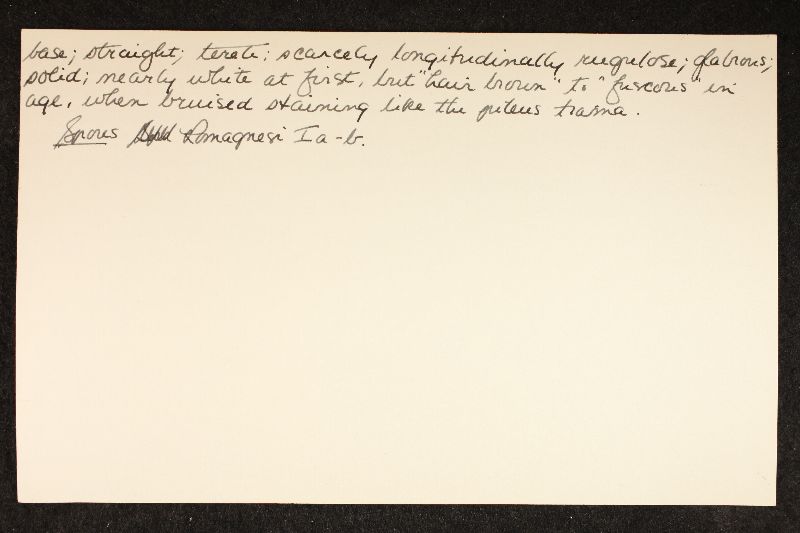 base; straight; terete; scarcely longitudinally rugulose; glabrous;
solid; nearly white at first, but "hair brown" to "fuscous" in
age, when bruised staining like the pileus trama.
Spores Romagnesi Ia-b.